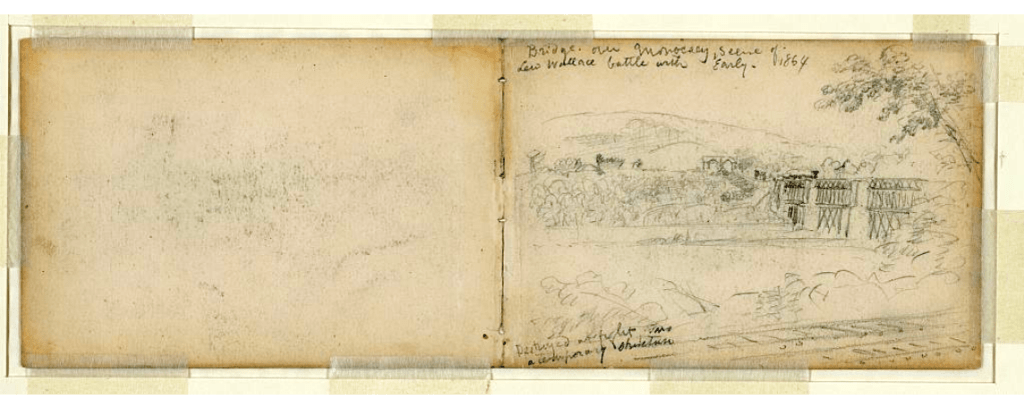 Bridge. over Monocacy, Scene of.
Lew Wallace battle with Early. 1864
Destroyed at fight
a temporary structure